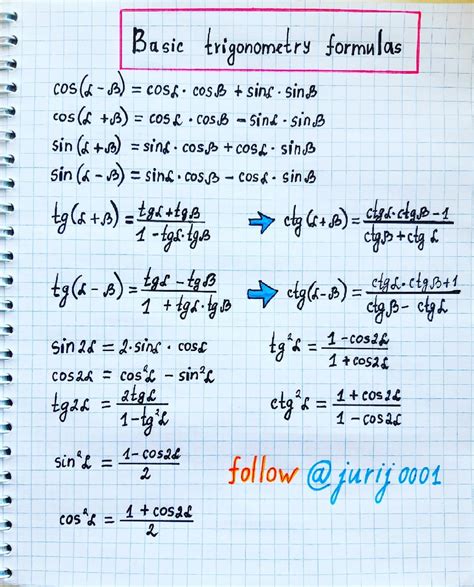 Basic trigonometry formulas
cos(α - β) = cosα · cosβ + sinα · sinβ
cos(α + β) = cosα · cosβ - sinα · sinβ
sin(α + β) = sinα · cosβ + cosα · sinβ
sin(α - β) = sinα · cosβ - cosα · sinβ
tg(α + β) = (tgα + tgβ)/(1 - tgα · tgβ) ⇒ ctg(α + β) = (ctgα · ctgβ - 1)/(ctgβ + ctgα)
tg(α - β) = (tgα - tgβ)/(1 + tgα · tgβ) ⇒ ctg(α - β) = (ctgα · ctgβ + 1)/(ctgβ - ctgα)
sin2α = 2 · sinα · cosα tg²α = (1 - cos2α)/(1 + cos2α)
cos2α = cos²α - sin²α
tg2α = 2tgα/(1 - tg²α) ctg²α = (1 + cos2α)/(1 - cos2α)
sin²α = (1 - cos2α)/2 follow @jurij0001
cos²α = (1 + cos2α)/2